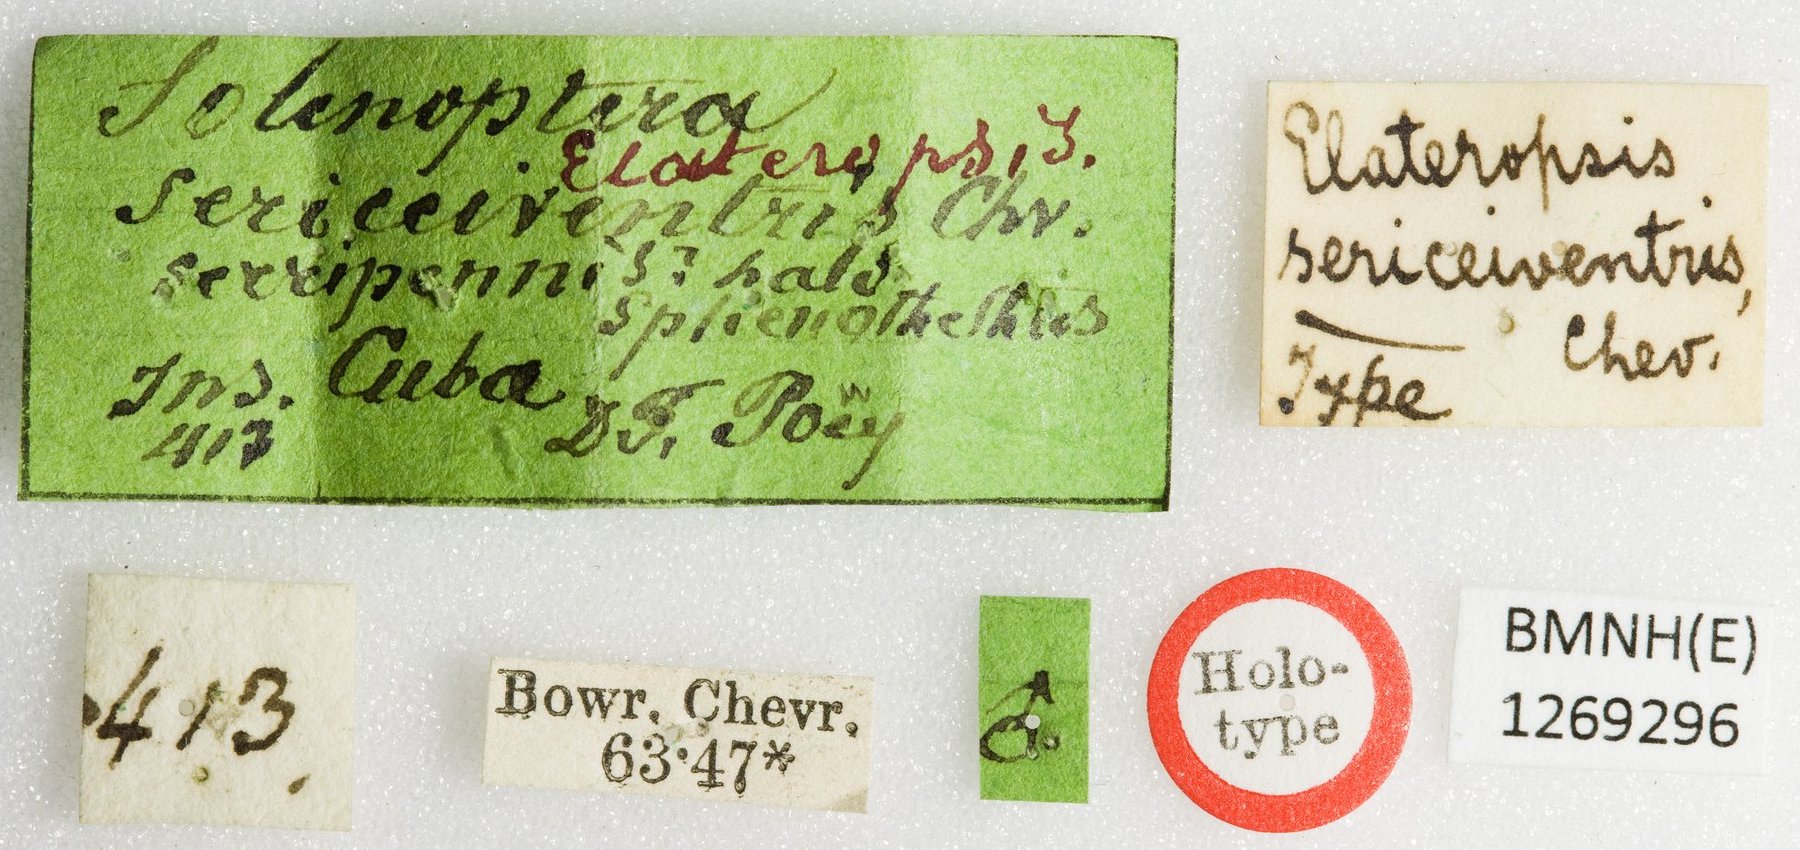 Solenoptera
Elateropsis.
sericeiventris Chv.
serripennis? hald
Sphenothethus
Ins. Cubæ
413 D F. Poëy
Elateropsis
sericeiventris,
Chev.
Type
413,
Bowr. Chevr.
63·47*
♂.
Holo-
type
BMNH(E)
1269296